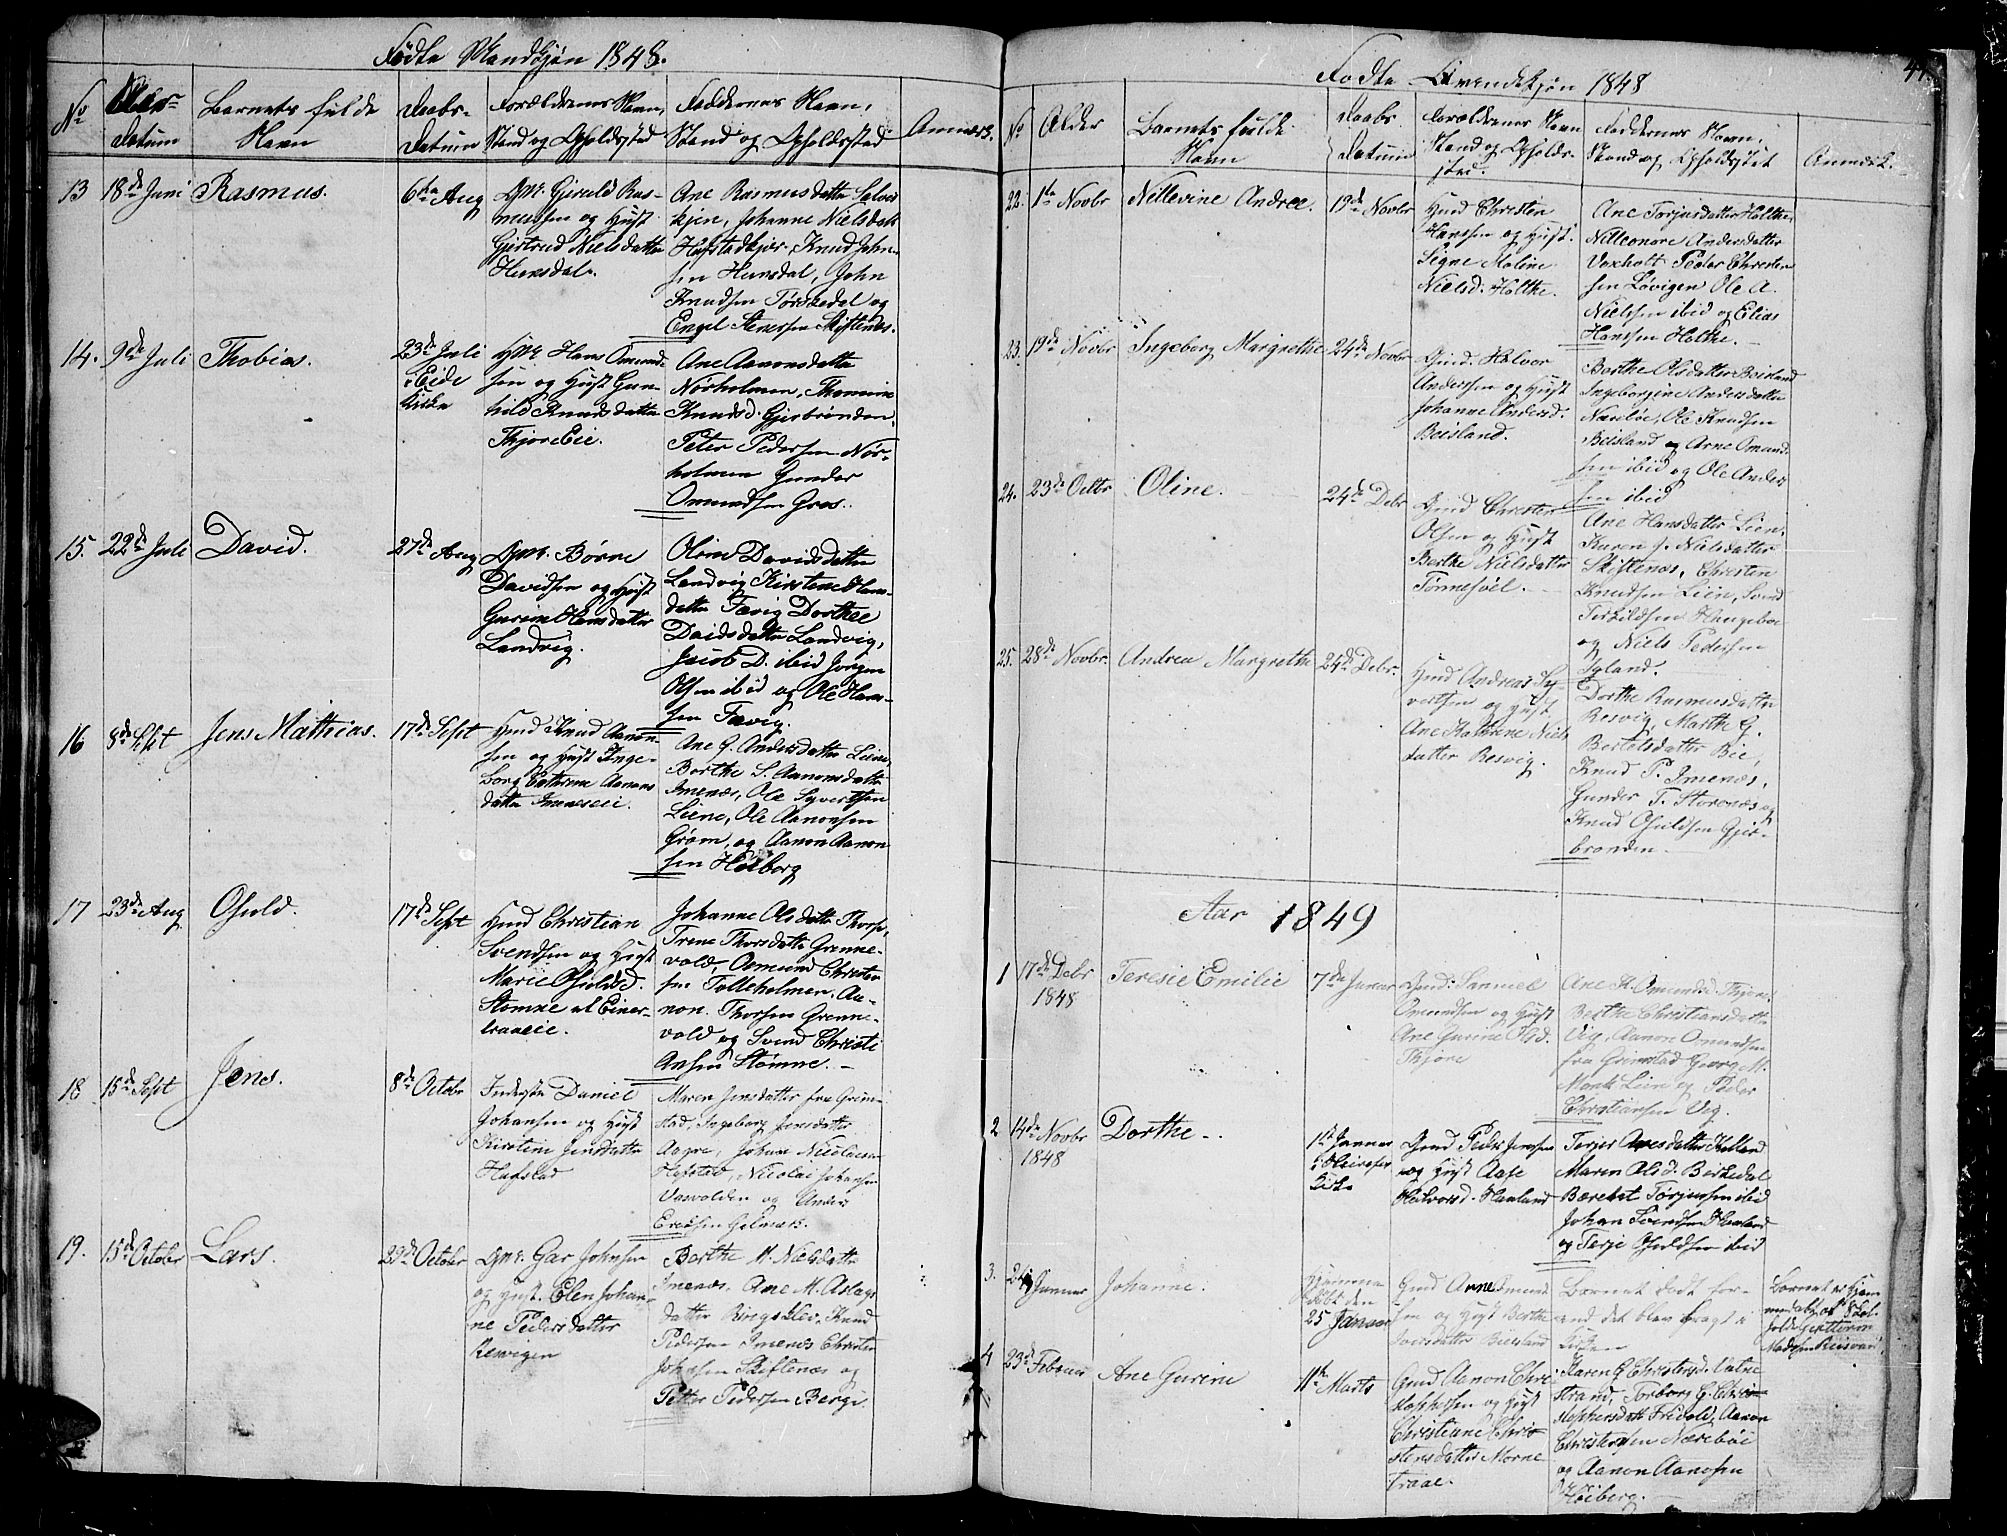 Fødte Mandkjøn 1848.
No
Datum
Barnets fulde
Navn
Daabs-
Datum
Forældrenes Navn,
Stand og Opholdssted
Faddernes Navn,
Stand og Opholdssted
Anmærk.
13 18de Juni Rasmus. 6te Aug
Gmd. Gjeruld Ras-
mussen og Hust
Gjertrud Nielsdatter
Hunsdal.
Ane Rasmusdatter
Johanne Nielsdatt
Knud John-
sen Hunsdal, John
Knudsen Tørskedal og
Engel Stensen Skiftenes.
14. 9de Juli Thobias. 23de Juli
i Eide
Kirke
Hmd. Hans Omund-
sen og Hust Gun-
hild Knudsdatter
Thjore Eie.
Ane Aanonsdatter
Nørholmen, Thomine
Knudsd. Gjerbrønden,
Peter Pedersen Nør-
holmen Gunder
Omundsen Gros.
15. 22de Juli David. 27de Aug
Gmd. Børne
Davidsen og Hust
Gurine Hansdatter
Landvig.
Oline Davidsdatter
Landvig Kirstine Hans-
datter Fævig Dorthee
Daidsdatter Landvig,
Jacob D. ibid Jørgen
Olsen ibid og Ole Han-
sen Fævig.
16 8de Sept Jens Mathias. 17de Sept
Hmd Knud Aanon-
sen og Hust Inge-
borg Catrine Aanons
datter Imeneseie.
Ane G. Andersdatter Leine,
Berthe S. Aanonsdatter
Imenæs, Ole Syvertsen
Leine, Ole Aanonsen
Grøm, og Aanon Aanon
sen Høiborg
17 23de Aug Osuld. 17de Sept
Hmd Christian
Svendsen og Hust
Marie Osulsd.
Stømne al Einer-
traaeie.
Johanne Olsdatter
Trene Thorsdatter Grenne-
vold, Osmund Christen
sen Tolleholmen, Aa-
non Thorsen Grenne-
vold og Svend Christi
Ansen Stømne.
18 15de Sept Jens. 8de Octobr
Inderste Daniel
Johansen og Hust
Kirstine Jensdatter
Hafstad
Maren Jensdatter fra Grim-
stad, Ingeborg Jensdatter
Aagre, Johan Nicolaisen
Hafstad, Nicolai Johansen
Vasvolden og Anders
19. 15de October Lars. 29de October
Gmd. Gar Johnsen
og Hust. Elen Johan-
ne Pedersdatter
Resvigen
Berthe M. Nielsdatter
Imenæs, Ane M. Aslags
datter Ringskleiv, Knud
Pedersen Imenæs Christen
Johnsen Skiftenæs og
Petter Pedersen Berge.
Fødte Qvindekjøn 1848
No
Alder
Barnets fulde
Navn
Daabs
Datum
Forældrenes Navn
Stand og Opholds-
sted.
Faddernes Navn,
Stand og Opholdssted
Anmerk.
22. 1te Novbr Nillevine Andree. 19de Novbr
Hmd Christen
Hanssen og Hust.
Signe Maline
Nielsd. Holthe.
Ane Torjusdatter Holthe
Nilleonore Andersdatter
Voxholt Peder Christen
sen Løvigen Ole A.
Nielsen ibid og Elias
Hansen Holthe.
23. 19de Novbr Ingeborg Margrethe 24de Novbr
Gmd. Halvor
Anderssen og Hust
Johanne Andersd.
Beisland.
Berthe Olsdatter Beisland
Ingeborgine Andersdatter
Ole Knudsen
Beisland og Arne Omund
sen ibid og Ole Ander
sen ibid
24. 23de Octbr Oline. 24de Debr
Gmd Christen
Olsen og Hust
Berthe Nielsdatter
Tønnesøl.
Ane Hansdatter Lien,
Karen J. Nielsdatter
Skiftenæs, Christen
Knudsen Lien, Svend
Terkildsen Haugeboe
og Niels Pedersen
Igland.
25. 28de Novbr. Andrea Margrethe 24de Debr.
Hmd Andreas Sy-
vertsen og Hust
Ane Katrine Niels
datter Resvig.
Dorthe Rasmusdatter
Resvig, Marthe G.
Bertelsdatter Bie,
Knud P. Imenæs,
Gunder T. Storenæs og
Knud Osuldsen Gjer-
brønden.
Aar 1849
1 17de Debr
1848
Teresie Emilie 7de Januar
Gmd. Samuel
Omundsen og Hust
Ane Gurine Olsd.
Thjøre
Ane K. Omundsd Thjøre
Berthe Christiansdatter
Vig, Aanon Omundsen
fra Grimstad Georg M.
Monk Lien og Peder
Christiansen Vig.
2 14de Novbr
1848
Dorthe 1te Januar
Kirke
Gmd Peder Jensen
og Hust Aase
Halvorsd. Haaland
Maren Olsd. Berkedal
Torjussen ibid
Johan Svendsen Haaland
og Terje Osuldsen ibid
3. 24 Januar Johanne. Hjemme
døbt den
25 Januar
Gmd Arne Omund
sen og Hust Berthe
Beisland
Barnet dødt før-
end det blev bragt i
Kirken
Barnet er hjem
medøbt af
4 23de Februar Ane Gurine 11te Marts
Gmd Aanon Chri-
stophersen og Hust
Christiane Chri-
stensdatter Morne
traae.
Karen G Christensd. Vatne
strand, Torborg G. Chri-
stophersdatt Frivold, Aanon
Christensen Nærebøe
og Aanon Aanonsen
Høiberg.